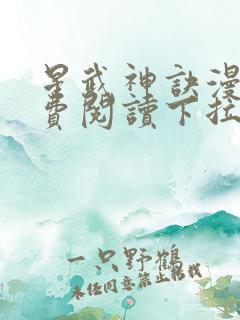 星武神訣漫
費閱讀下拉
一只野鶴
未经同意禁止转载